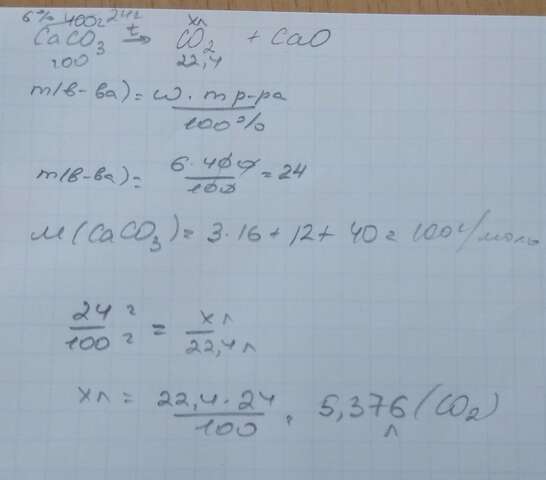 6% 400г 24г xл
CaCO3 t→ CO2 + CaO
100 22,4
m(в-ва) = ω · m р-ра
100%
m(в-ва) = 6 · 400 = 24
100
M(CaCO3) = 3·16 + 12 + 40 = 100 г/моль
24 г = xл
100 г 22,4 л
xл = 22,4·24 = 5,376 (CO2)
100 л